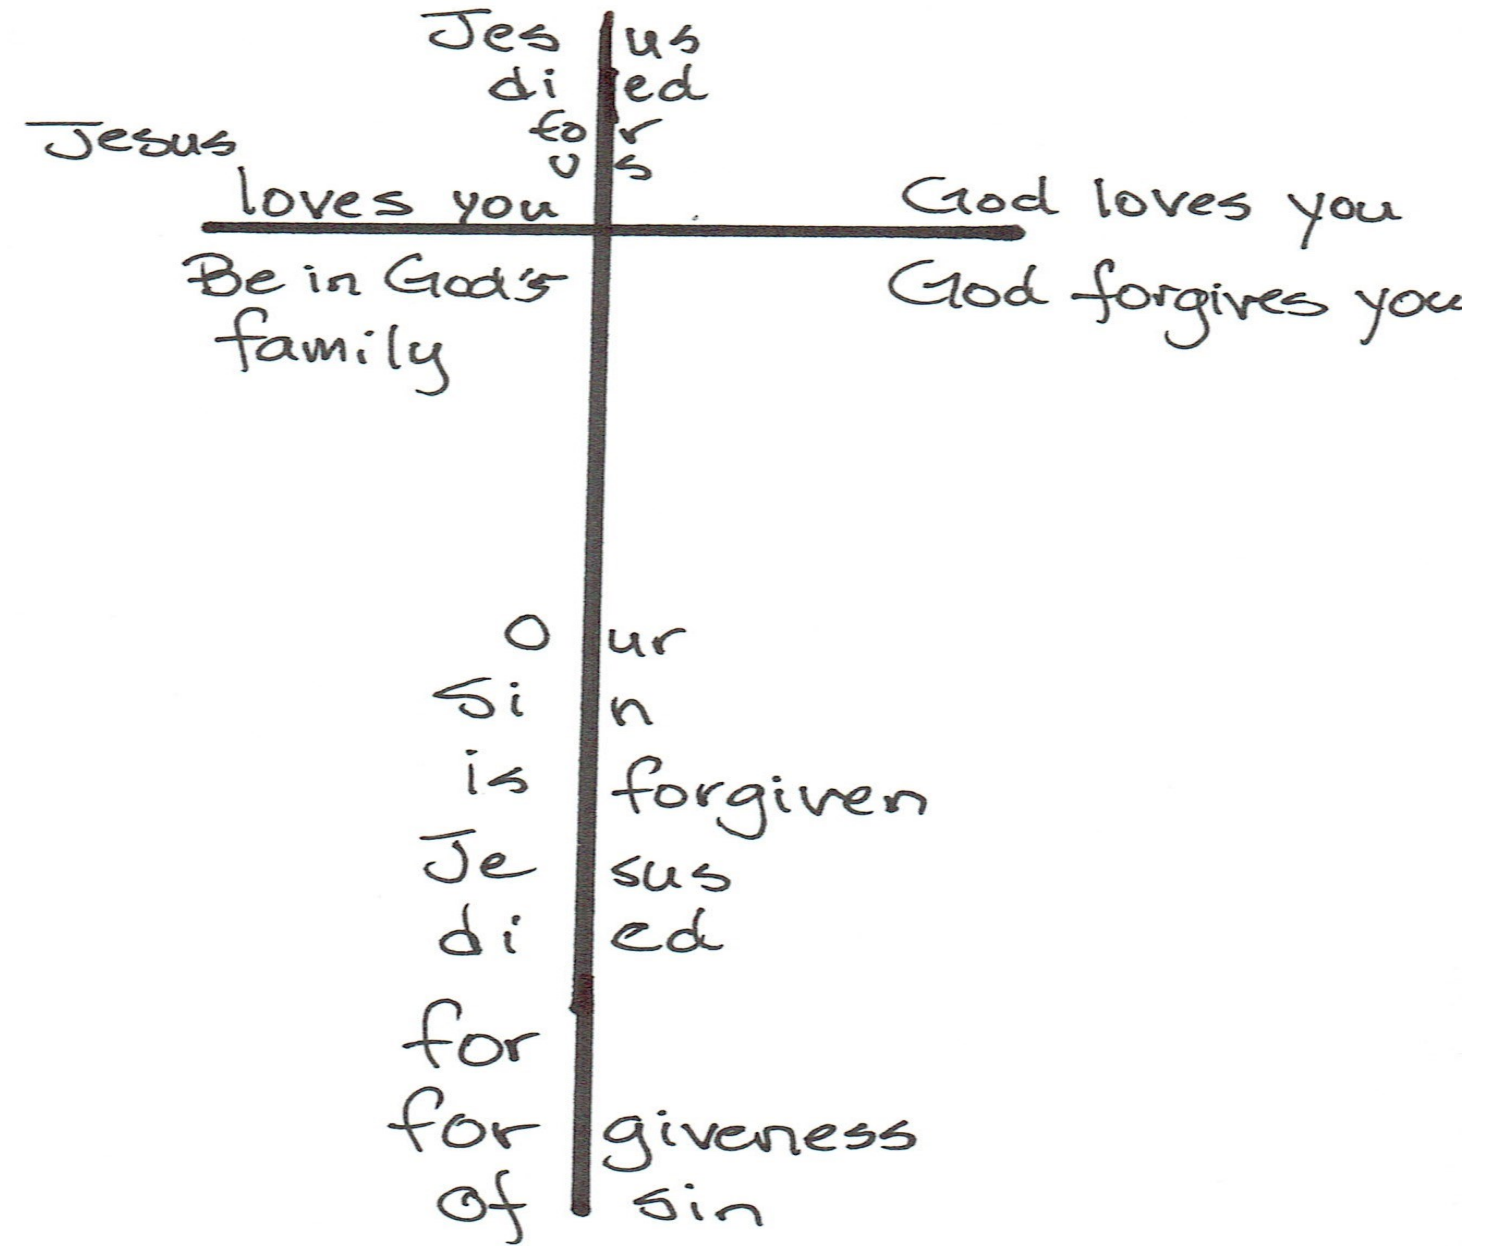 Jes us
di ed
for
us
Jesus
loves you
God loves you
Be in God's
family
God forgives you
O ur
Si n
is forgiven
Je sus
di ed
for
for giveness
of sin